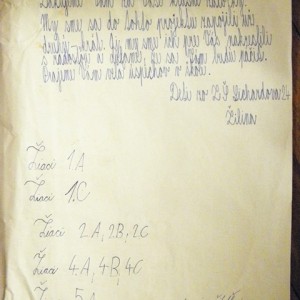 Ďakujeme Vám za Vaše krásne
My sme sa do tohto projektu zapojili už
druhý krát. Aj my sme ich pre Vás nakreslili
s radosťou a dúfame, že sa Vám budú páčiť.
Prajeme Vám veľa úspechov v škole.
Deti zo ZŠ Lichardova 24
Žilina
Žiaci 1.A
Žiaci 1.C
Žiaci 2.A, 2.B, 2.C
Žiaci 4.A, 4.B, 4.C
5.A